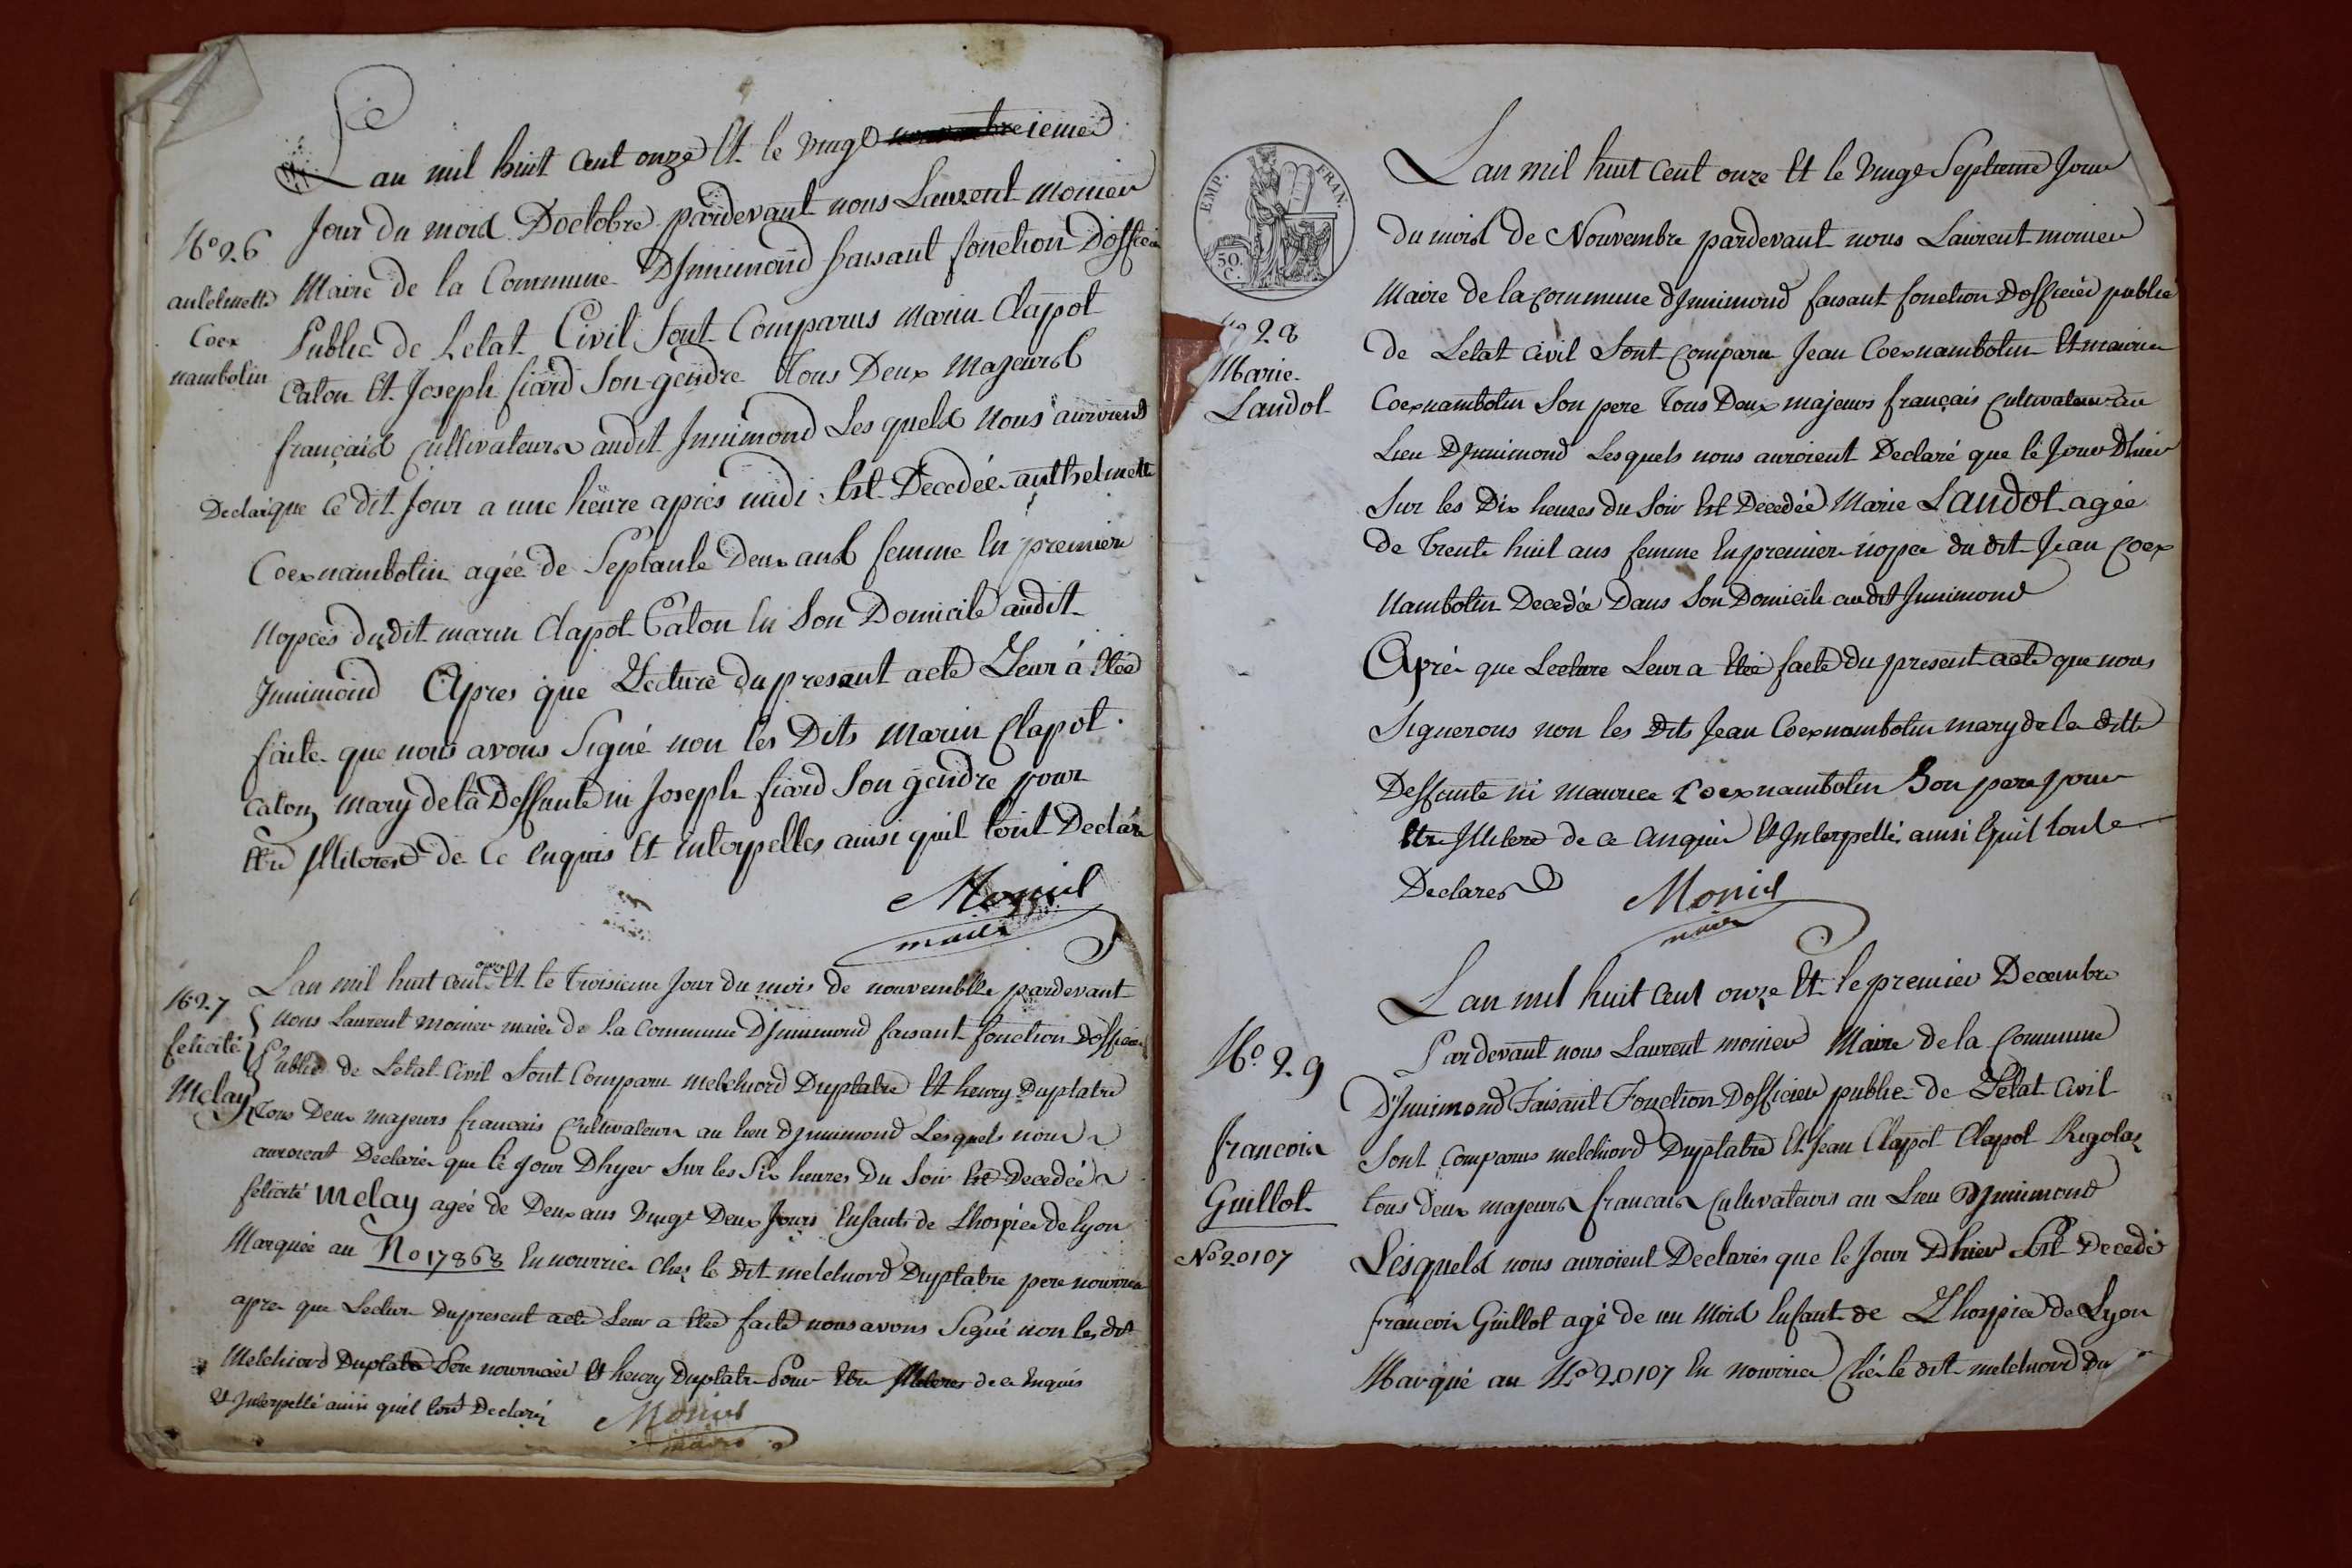 Lan mil huit cent onze Et le vingt ieme
Jour du mois Doctobre pardevant nous Laurent monier
Nº 26
anthelmette
Coex
nambotin
Maire de la Commune DJnnimond faisant fonction Dofficier
Public de Letat Civil Sont Comparus marin Clapot
Caton Et Joseph ficard Son gendre Tous Deux Majeurs
français Cultivateurs audit Jnnimond Les quels Nous auroient
Declaré que Ce dit Jour a une heure aprés midi Est Decedée anthelmette
Coexnambotin agée de Septante Deux ans femme En premiere
Nopces dudit marin Clapot Caton En Son Domicile audit
Jnnimond Apres que Lecture du present acte Leur á Etée
faite que nous avons Signé non les Dits Marin Clapot
Caton mary de la Deffunte ni Joseph ficard Son gendre pour
Etre Jlliteres de Ce Enquis Et interpelles ainsi quil lont Declaré
Monier
maire
Nº 27
felicité
Melay
Lan mil huit cent onze Et le Troisieme Jour du mois de nouvembre pardevant
nous Laurent monier maire de la Commune DJnnimond faisant fonction Dofficier
Public de Letat Civil Sont Comparu melchiord Duplatre Et henry Duplatre
Tous Deux majeurs francais Cultivateurs au lieu DJnnimond Les quels nous
auroient Declaré que le Jour Dhyer Sur les Six heures Du Soir Est Decedée
felicité melay agée de Deux ans vingt Deux Jours Enfants de Lhospice de Lyon
Marquée au No 17868 En nourrice Chez le Dit melchiord Duplatre pere nourricier
apres que Lecture Dupresent acte Leur a Etée faite nous avons Signé non les dit
Melchiord Duplatre Pere nourricier Et henry Duplatre Pour Etre Jlliteres de ce Enquis
Et Interpellé ainsi quil lont Declaré
Monier
maire
EMP. FRAN.
50. C.
28
Marie
Landot
Lan mil huit Cent onze Et le vingt Septieme Jour
du mois de Nouvembre pardevant nous Laurent monier
Maire de la commune dJnnimond faisant fonction Dofficier public
de Letat Civil Sont Comparu Jean Coexnambotin Et maurice
Coexnambotin Son pere Tous Deux majeurs français Cultivateur au
Lieu DJnnimond Les quels nous auroient Declaré que le Jour Dhier
Sur les Dix heures du Soir Est Decedée Marie Landot agée
de Trente huit ans femme En premier nopce du dit Jean Coex
Nambotin Decedée Dans Son Domicile audit Jnnimond
Apré que Lecture Leur a Etée faite du present acte que nous
Signerons non les Dits Jean Coexnambotin mary de la ditte
Deffunte ni maurice Coexnambotin Son pere pour
Etre Jlliteré de ce Anquis Et Jnterpellé ainsi Quil lont
Declares
Monier
maire
Nº 29
francois
Guillot
Nº 20107
Lan mil huit Cent onze Et le premier Decembre
Pardevant nous Laurent monier Maire de la Commune
D'Jnnimond Faisant Fonction Dofficier public de Letat Civil
Sont Comparus melchiord Duplatre Et Jean Clapot Clapot Rigolas
tous deux majeurs francais Cultivateurs au Lieu DJnnimond
Lesquels nous auroient Declarés que le Jour Dhier Est Decedé
francois Guillot agé de un Mois Enfant de Lhospice de Lyon
Marqué au Nº 20107 En nourrice Ché le dit melchiord Du